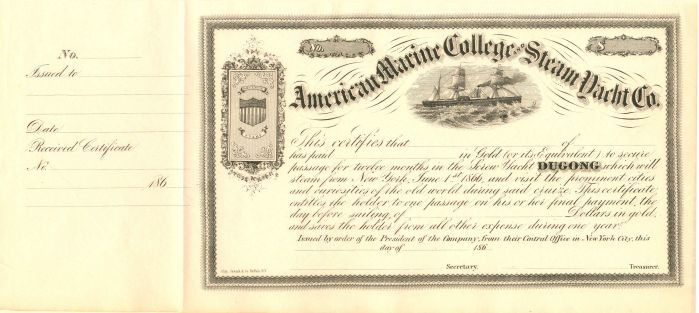 No.
Issued to
Date
Received Certificate
No.
186
No.
$
American Marine College and Steam Yacht Co.
This certifies that of
has paid in Gold (or its Equivalent) to secure
passage for twelve months in the Screw Yacht DUGONG which will
steam from New York, June 1st 1866, and visit the prominent cities
and curiosities of the old world during said cruize. This certificate
entitles the holder to one passage on his or her final payment, the
day before sailing, of Dollars in gold,
and saves the holder from all other expense during one year.
Issued by order of the President of the Company, from their Central Office in New York City, this
day of 186
Secretary. Treasurer.